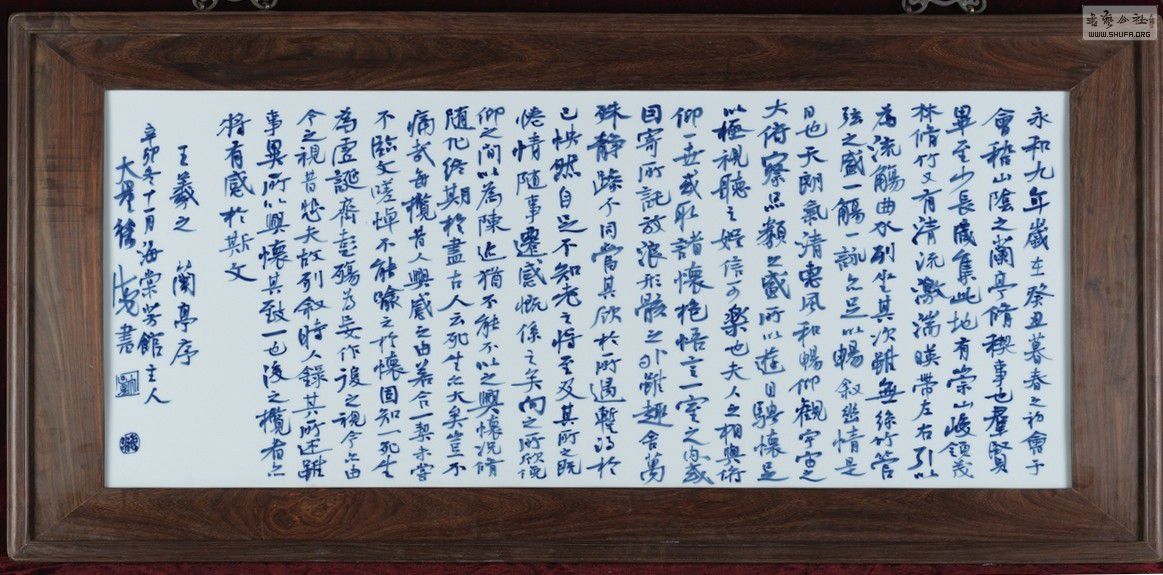 永和九年歲在癸丑暮春之初會于
會稽山陰之蘭亭脩稧事也羣賢
畢至少長咸集此地有崇山峻領茂
林脩竹又有清流激湍暎帶左右引以
為流觴曲水列坐其次雖無絲竹管
弦之盛一觴一詠亦足以暢叙幽情是
日也天朗氣清惠風和暢仰觀宇宙之
大俯察品類之盛所以遊目騁懷足
以極視聽之娛信可樂也夫人之相與俯
仰一世或取諸懷抱悟言一室之內或
因寄所託放浪形骸之外雖趣舍萬
殊靜躁不同當其欣於所遇暫得於
己怏然自足不知老之將至及其所之既
惓情隨事遷感慨係之矣向之所欣俛
仰之間以為陳迹猶不能不以之興懷況脩
隨化終期於盡古人云死生亦大矣豈不
痛哉每攬昔人興感之由若合一契未嘗
不臨文嗟悼不能喻之於懷固知一死生
為虛誕齊彭殤為妄作後之視今亦由
今之視昔悲夫故列叙時人錄其所述雖
事異所以興懷其致一也後之攬者亦
將有感於斯文
王羲之 蘭亭序
辛卯冬十一月海棠芳館主人
書
WWW.SHUFA.ORG